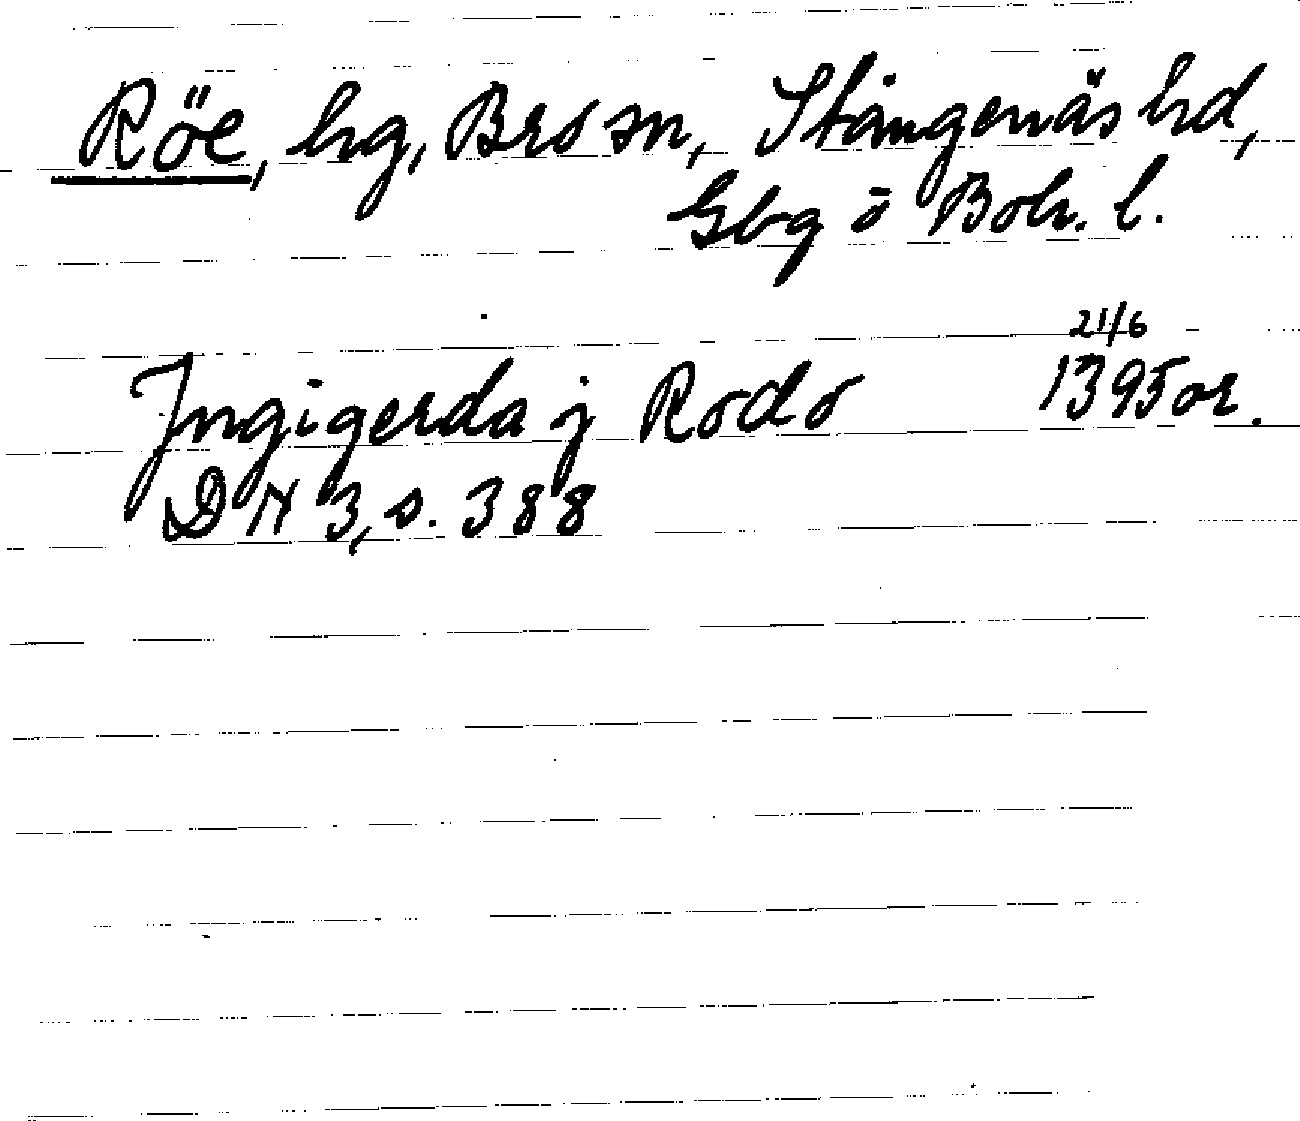 Röe, hg, Bro sn, Stångenäs hd,
Gbg o Boh. l.
21/6
Jngigerda j Rodo 1395 or.
DN 3, s. 388